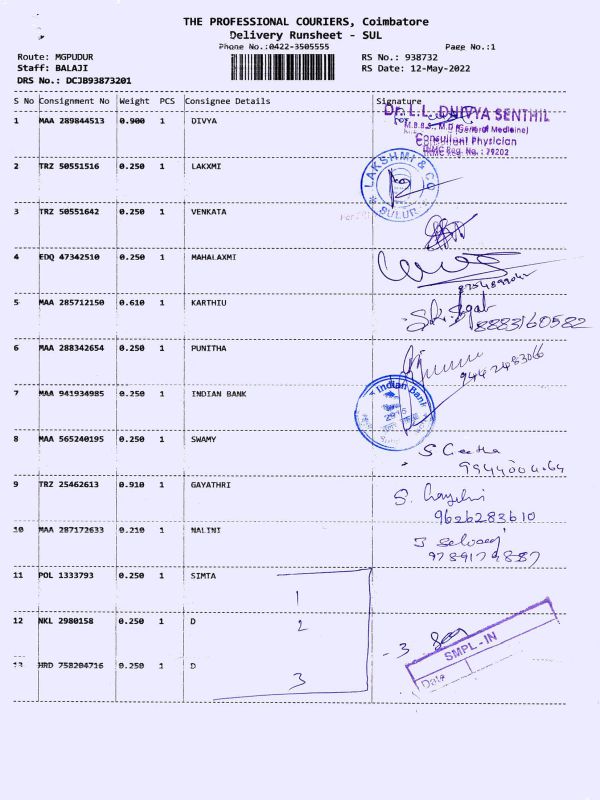 THE PROFESSIONAL COURIERS, Coimbatore
Delivery Runsheet - SUL
Phone No.:0422-3505555
Page No.:1
Route: MGPUDUR
RS No.: 938732
Staff: BALAJI
RS Date: 12-May-2022
DRS No.: DCJB93873201
S No Consignment No Weight PCS Consignee Details Signature
1 MAA 289844513 0.900 1 DIVYA
for
Dr. L.L. DHIVYA SENTHIL
M.B.B.S., M.D (General Medicine)
Consultant Physician
TNMC Reg. No. : 79202
2 TRZ 50551516 0.250 1 LAKXMI
LAKSHMI & CO
SULUR
3 TRZ 50551642 0.250 1 VENKATA
4 EDQ 47342510 0.250 1 MAHALAXMI
5 MAA 285712150 0.610 1 KARTHIU
8883160582
6 MAA 288342654 0.250 1 PUNITHA
9442483066
7 MAA 941934985 0.250 1 INDIAN BANK
Indian Bank
8 MAA 565240195 0.250 1 SWAMY
S Geetha
9 TRZ 25462613 0.910 1 GAYATHRI
S.
9626283610
10 MAA 287172633 0.210 1 NALINI
11 POL 1333793 0.250 1 SIMTA
1
12 NKL 2980158 0.250 1 D
2
- 3
SMPL-IN
Date
13 HRD 758204716 0.250 1 D
3